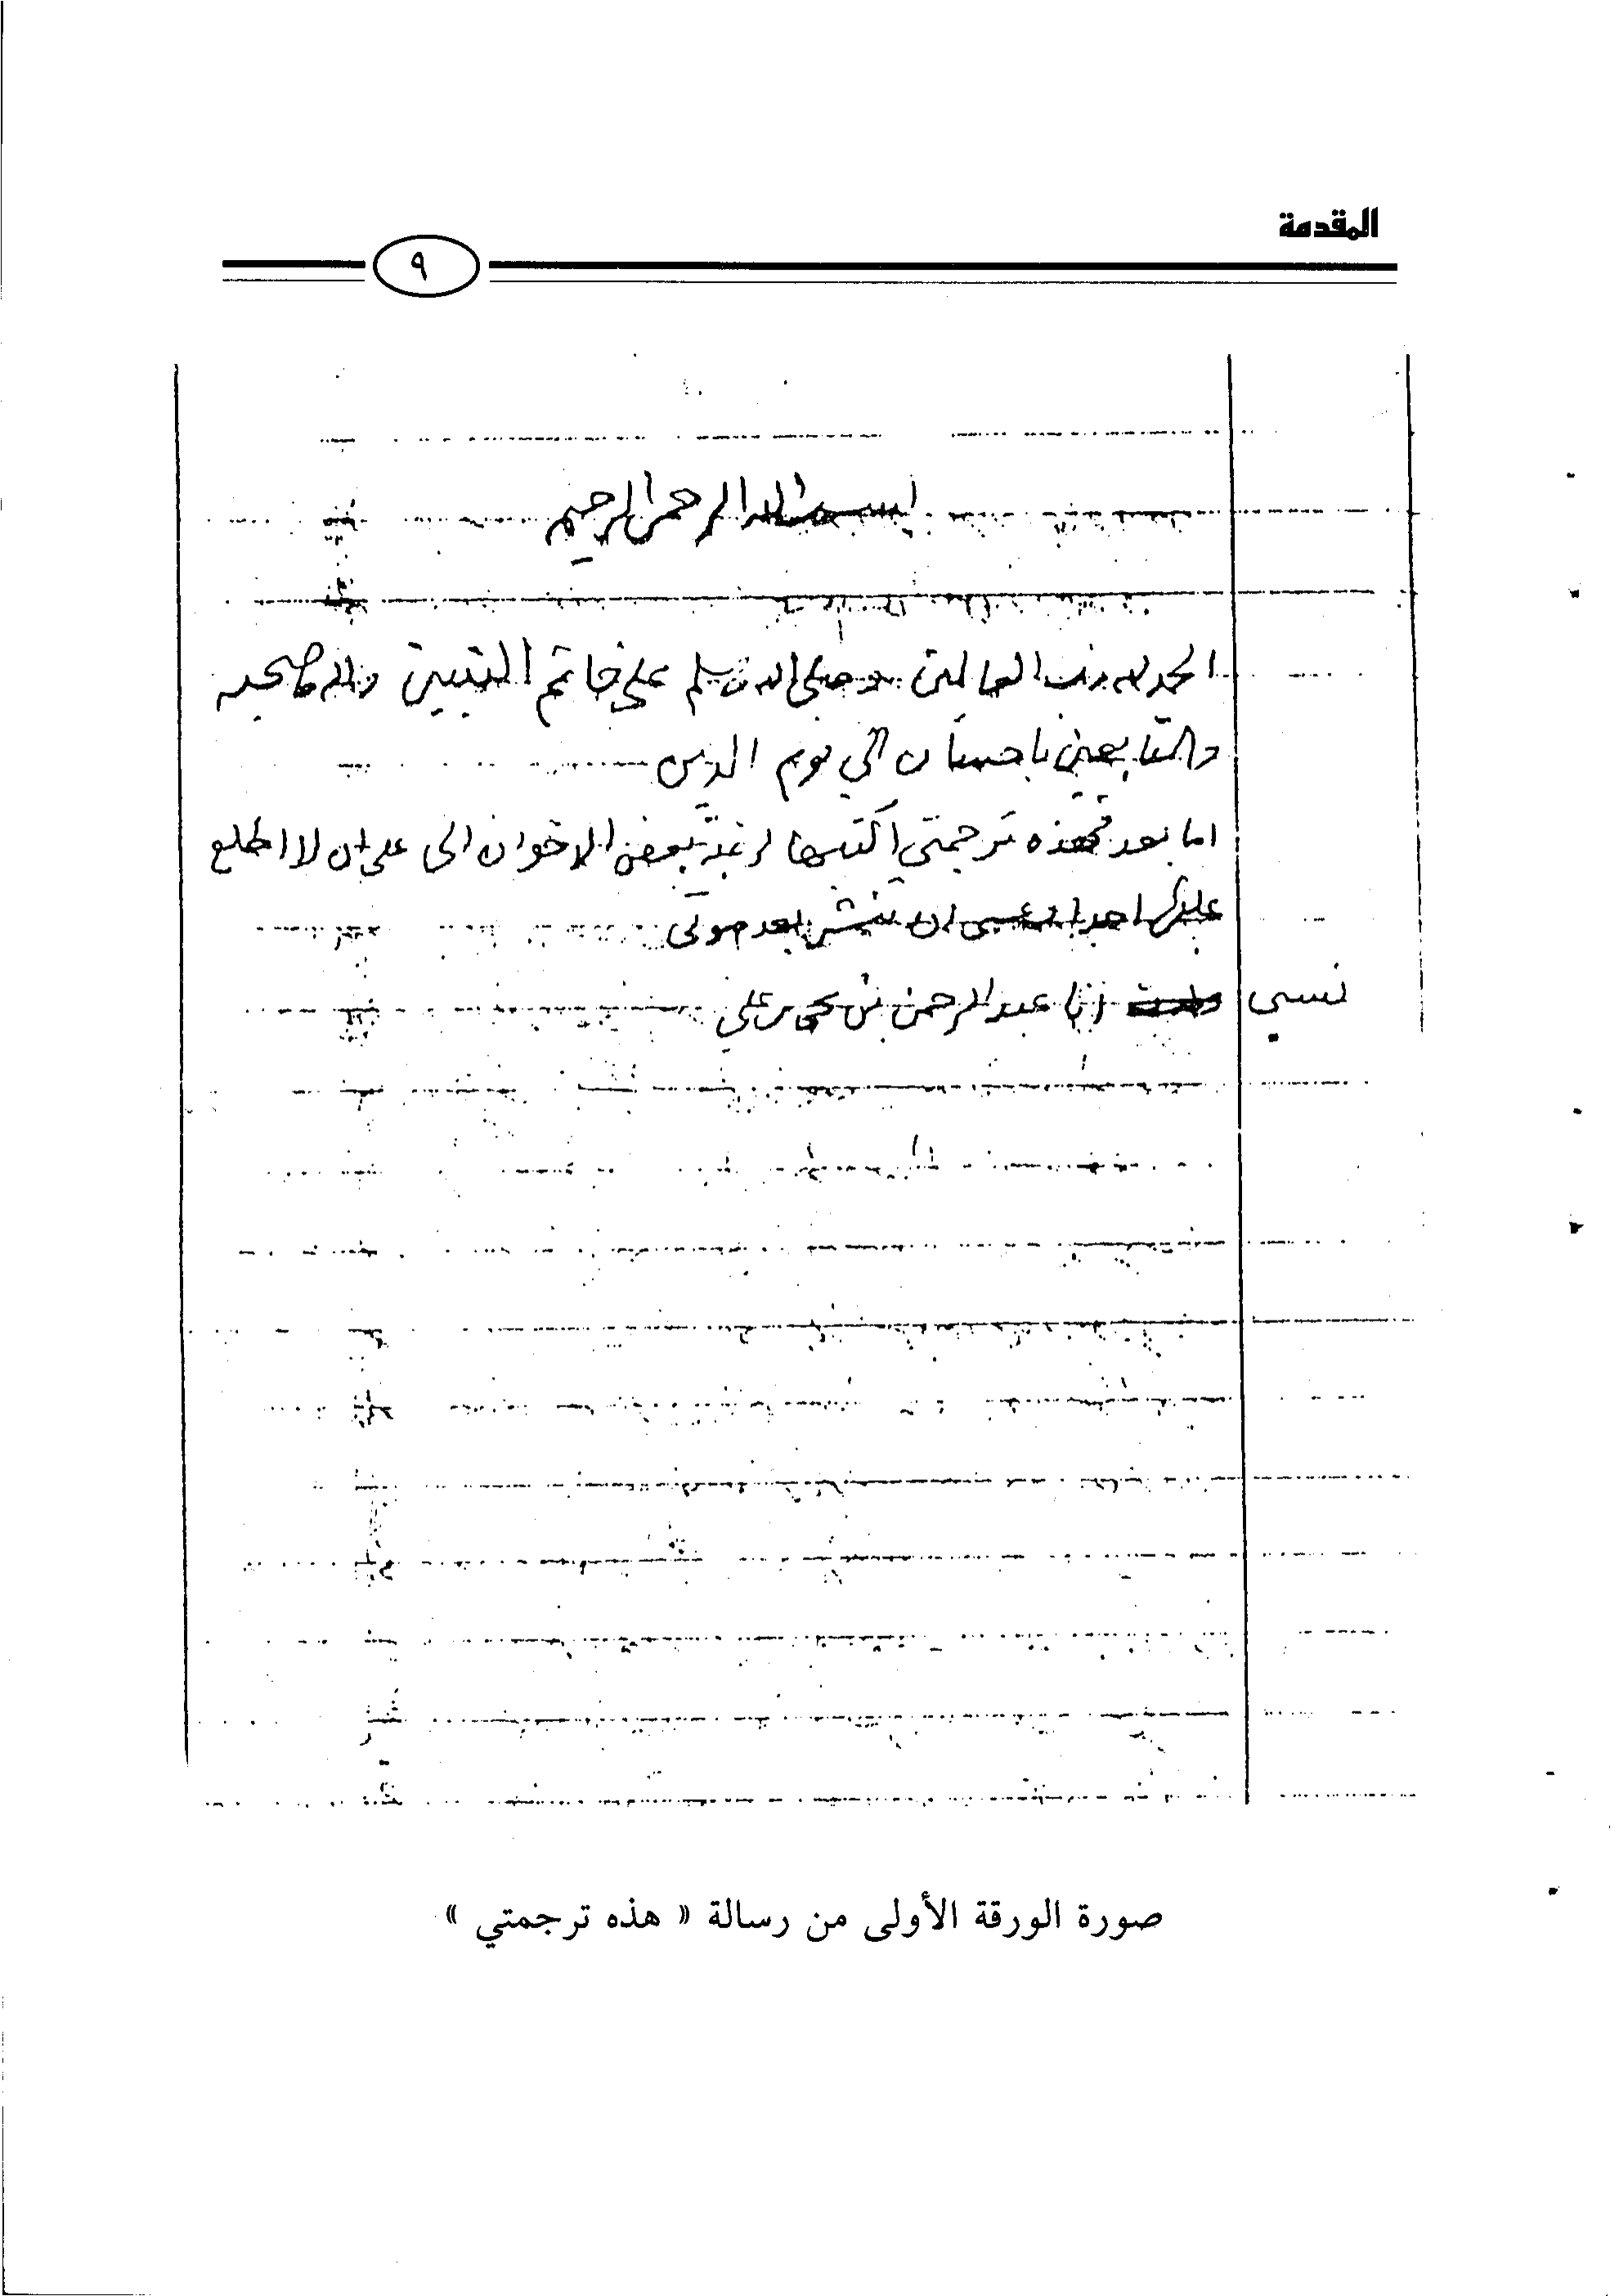 المقدمة
٩
بسم الله الرحمن الرحيم
الحمد لله رب العالمين وصلى الله وسلم على خاتم النبيين واله وصحبه
والتابعين باحسان الى يوم الدين
اما بعد فهذه ترجمتي اكتبها لرغبة بعض الاخوان الي على ان لا اطلع
عليها احدا وعسى ان تنشر بعد موتي
نسبي
انا عبد الرحمن بن يحيى بن علي
صورة الورقة الأولى من رسالة « هذه ترجمتي »